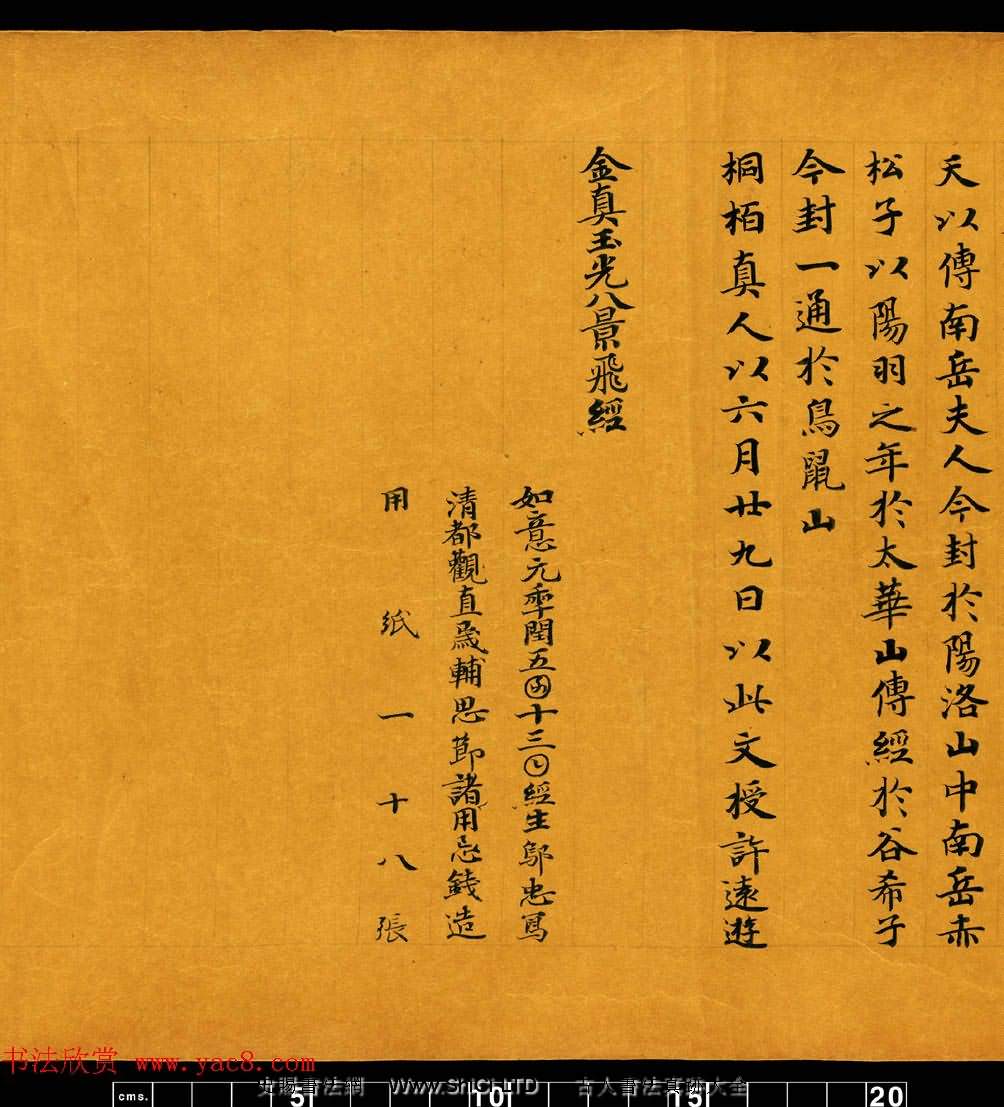 天以傳南岳夫人今封於陽洛山中南岳赤
松子以陽羽之年於太華山傳經於谷希子
今封一通於鳥鼠山
桐栢真人以六月廿九日以此文授許遠遊
金真玉光八景飛經
如意元秊閏五囝十三〇經生鄔忠寫
清都觀直歲輔思節諸用忌錢造
用紙一十八張
书法欣赏 www.yac8.com
史賜書法網 WWW.SHICI.LTD 古人書法真跡大全
cms. 5 10 15 20